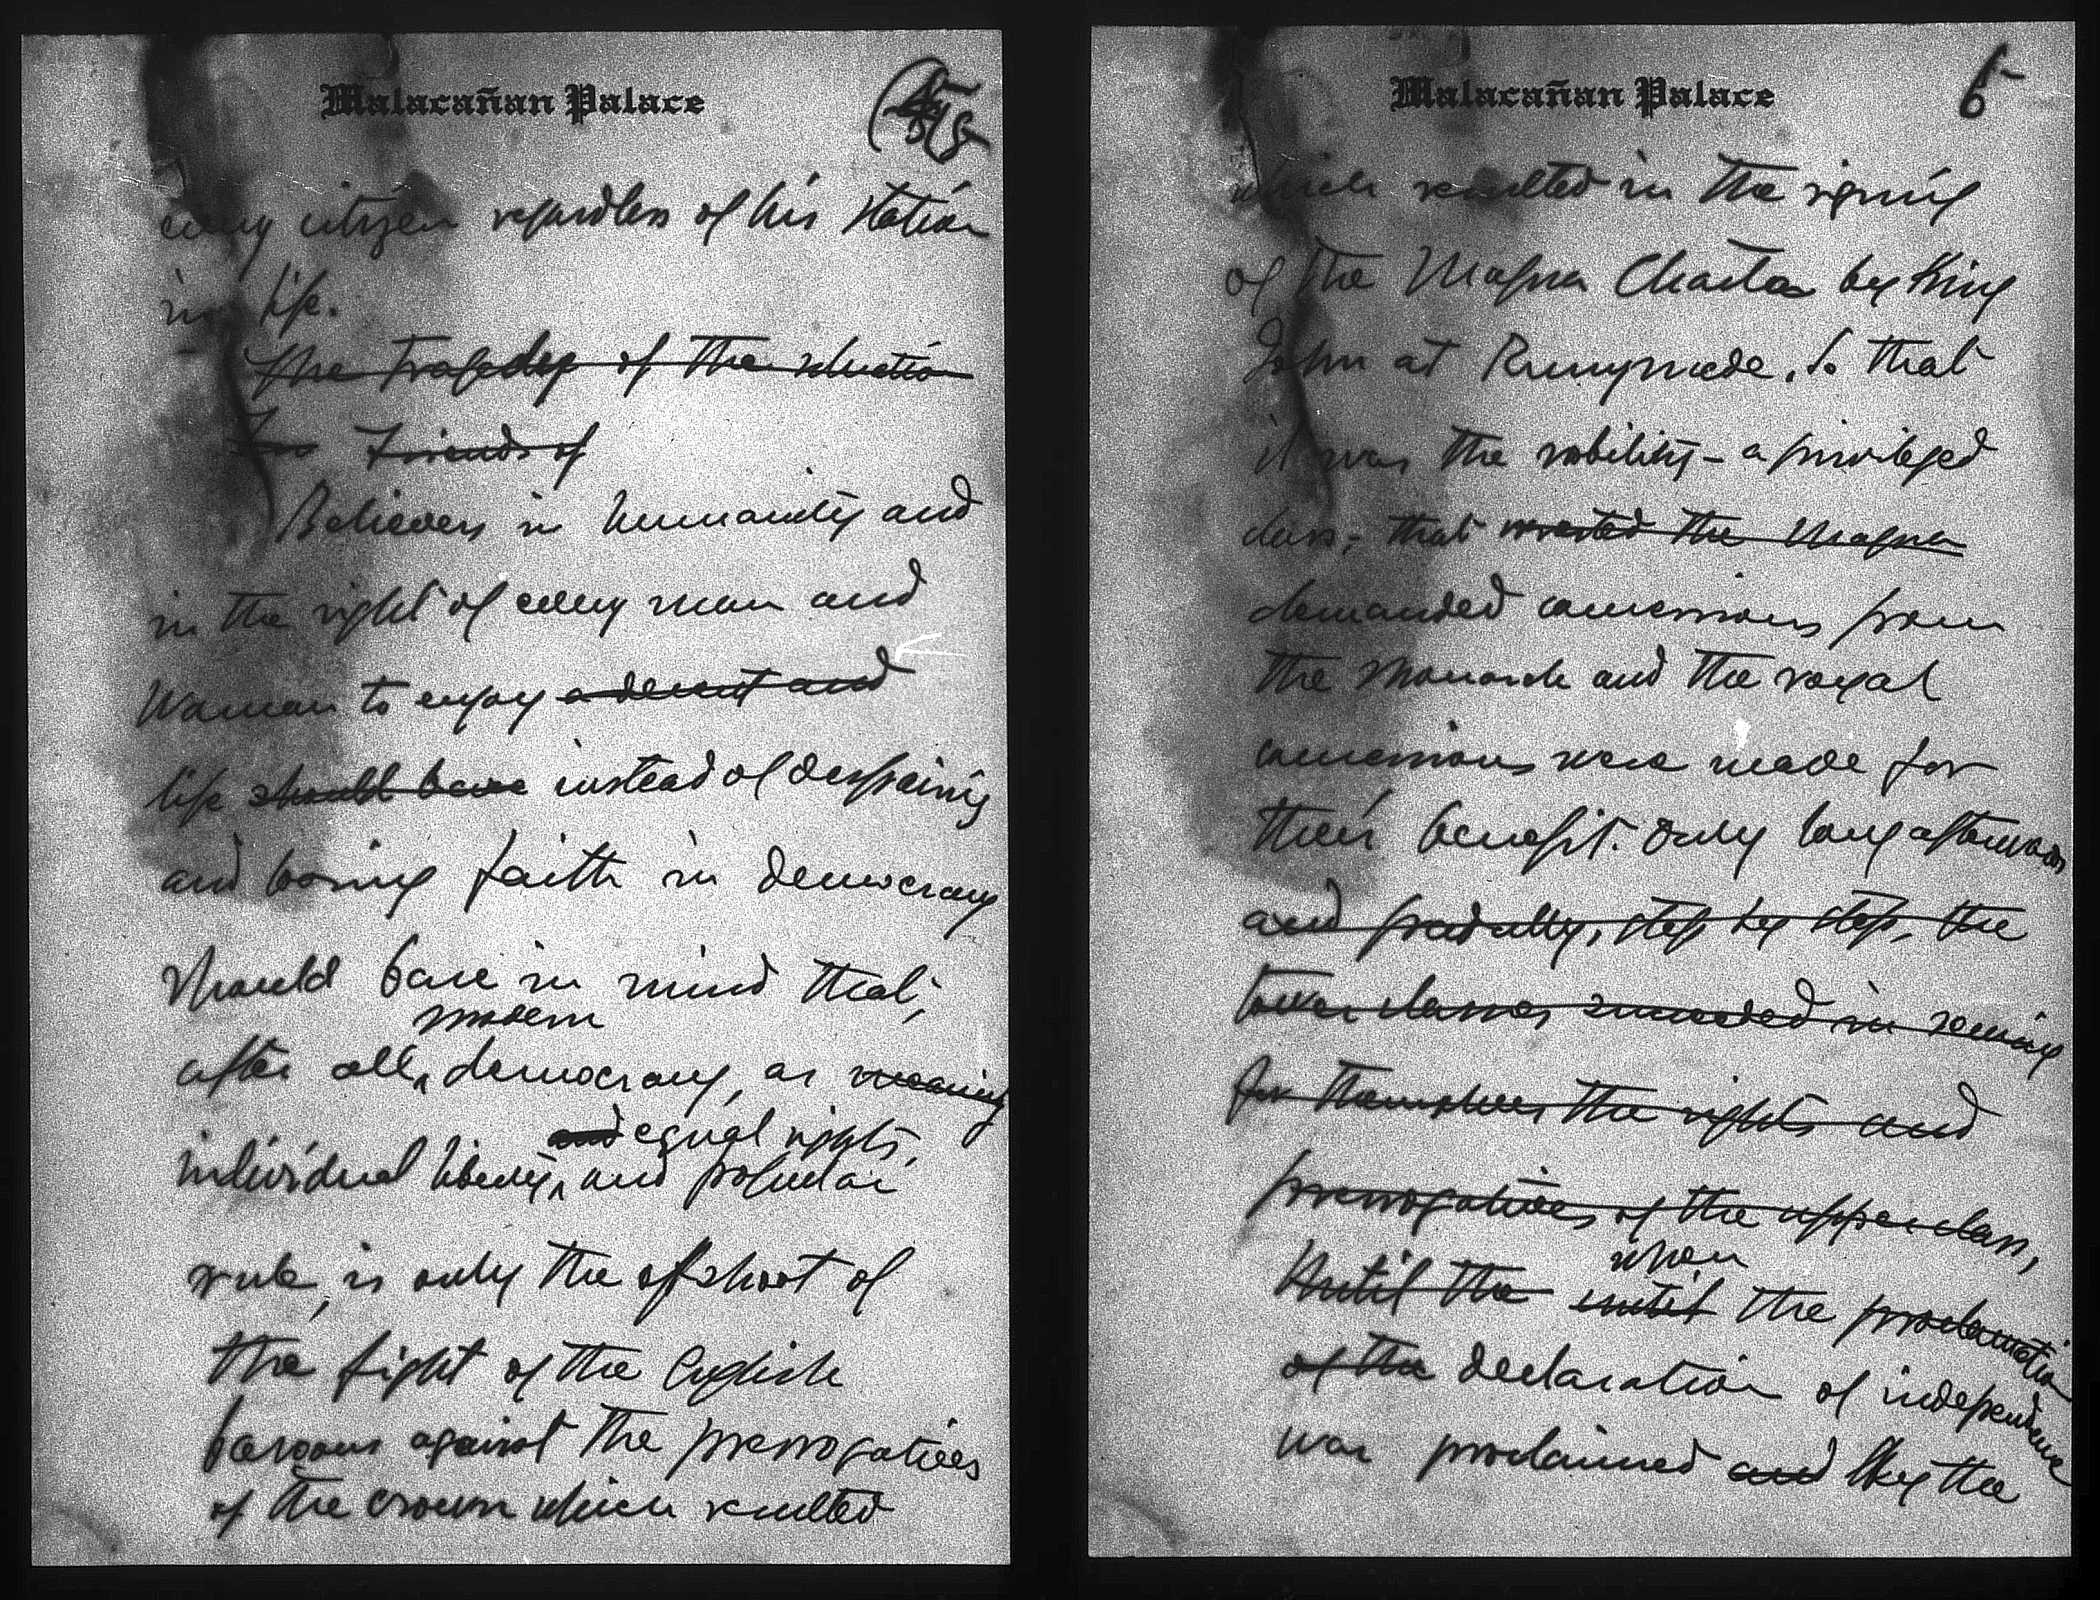 Malacañan Palace
every citizen regardless of his station
in life.
The tragedy of the situation
Friends of
Believers in humanity and
in the right of every man and
woman to enjoy a decent and
life should have instead of despairing
and losing faith in democracy
should bare in mind that,
modern
after all, democracy, as meaning
and equal rights,
individual liberty, and popular
rule, is only the ofshoot of
the fight of the English
barons against the prerrogatives
of the crown which resulted
Malacañan Palace
6
which resulted in the signing
of the Magna Charta by King
John at Runnymede. So that
it was the nobility - a privileged
class, - that wrested the Magna
demanded concessions from
the Monarch and the royal
concessions were made for
their benefit. Only long afterwards
and gradually, step by step, the
lower classes succeeded in securing
for themselves the rights and
prerrogatives of the upper class,
when
Until the until the proclamation
of the declaration of independence
was proclaimed and by the